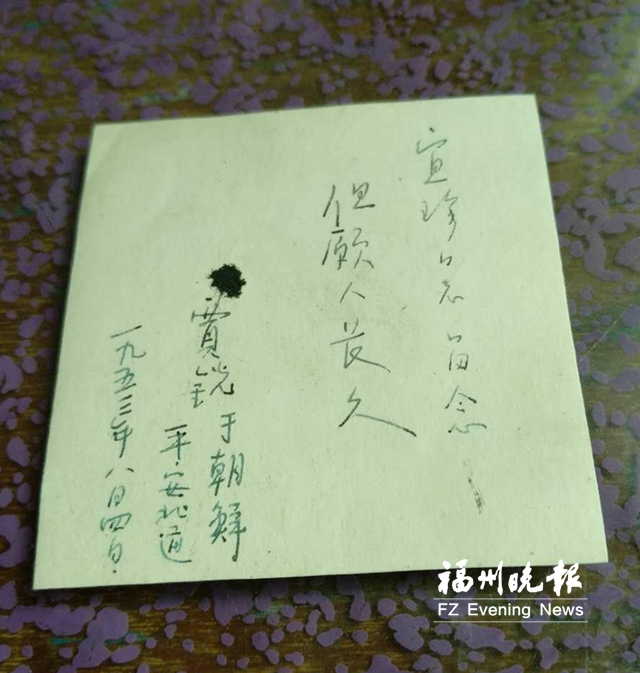 宜珍同志留念
但願人長久
賈銳于朝鮮
平安北道
一九五三年八月四日.
福州晚報
FZ Evening News